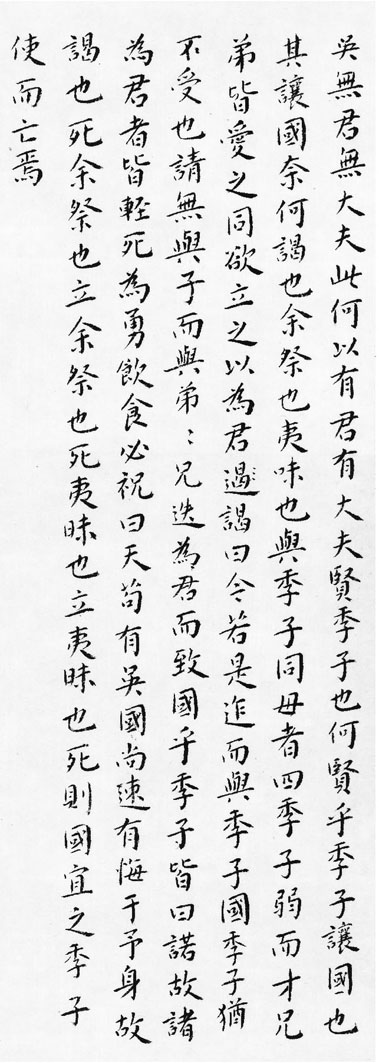 吳無君無大夫此何以有君有大夫賢季子也何賢乎季子讓國也
其讓國奈何謁也余祭也夷昧也與季子同母者四季子弱而才兄
弟皆愛之同欲立之以為君謁曰今若是迮而與季子國季子猶
不受也請無與子而與弟〻兄迭為君而致國乎季子皆曰諾故諸
為君者皆輕死為勇飲食必祝曰天苟有吳國尚速有悔于予身故
謁也死余祭也立余祭也死夷昧也立夷昧也死則國宜之季子
使而亡焉